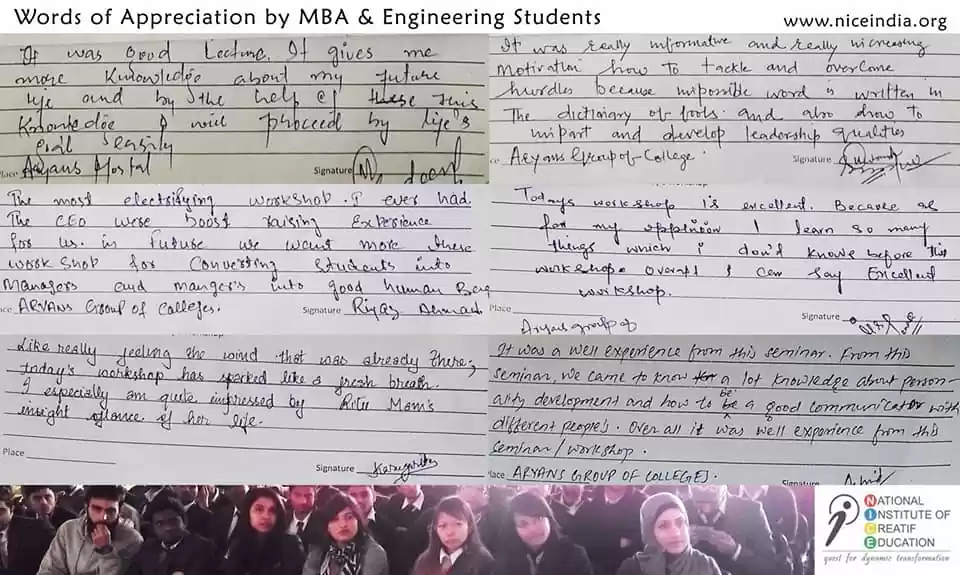 Words of Appreciation by MBA & Engineering Students
www.niceindia.org
It was Good Lecture. It gives me
more Knowledge about my future
life and by the help of this
Knowledge I will proceed by life's
easily
Place Aryans Hostal
Signature
It was really informative and really increasing
motivation how to tackle and overcome
hurdles because impossible word is written in
The dictionary of fools and also how to
impart and develop leadership qualities
ce Aryans Group of College.
Signature
The most electrifying workshop. I ever had.
The CEO were boost raising Experience
for us. in future we want more these
workshop for Converting Students into
Managers and manger's into good human Being
ce ARYANS Group of Colleges.
Signature Riyaz Ahmad
Todays workshop is excellent. Because as
for my oppinion I learn so many
things which i don't know before this
workshop. Overall I can say Excellent
workshop.
Place
Aryans group of
Signature
Like really feeling the wind that was already there;
today's workshop has sparked like a fresh breath.
I especially am quite impressed by Ritu Mam's
insight of her life.
Place
Signature
It was a well experience from this seminar. From this
seminar, we came to know a lot knowledge about person-
ality development and how to be a good communicator with
different people's. Over all it was well experience from this
seminar/workshop.
lace ARYANS GROUP OF COLLEGES.
Signature
NATIONAL
INSTITUTE OF
CREATIF
EDUCATION
NICE
quest for dynamic transformation